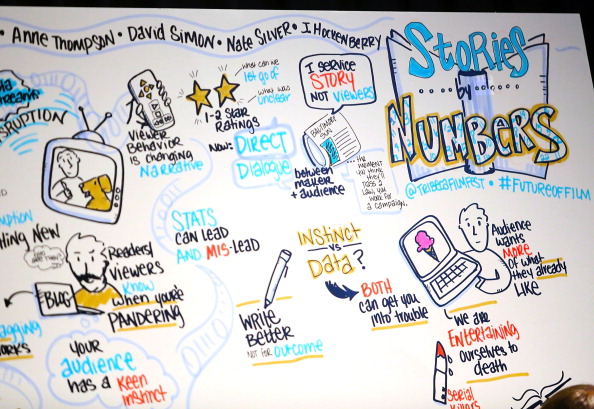 • Anne Thompson • David Simon • Nate Silver • J Hockenberry
Stories
by
Numbers
@TribecaFilmFest • #FutureOfFilm
I service
STORY
not viewers
what can we
let go of
what was
unclear
1-2 Star
Ratings
Now: Direct
Dialogue
between
maker
+ audience
Baltimore
Sun
the
moment
you think
they'll
pass a
law, you
work for
a campaign.
Viewer
Behavior
is changing
Narrative
STATS
can lead
and mis-lead
Instinct
vs
Data?
Both
can get you
into trouble
Audience
wants
MORE
of what
they already
LIKE
We are
Entertaining
ourselves to
death
Serial
Killers
Write
Better
not for outcome
Readers/
Viewers
know
when you're
Pandering
Blog
Your
audience
has a keen
instinct